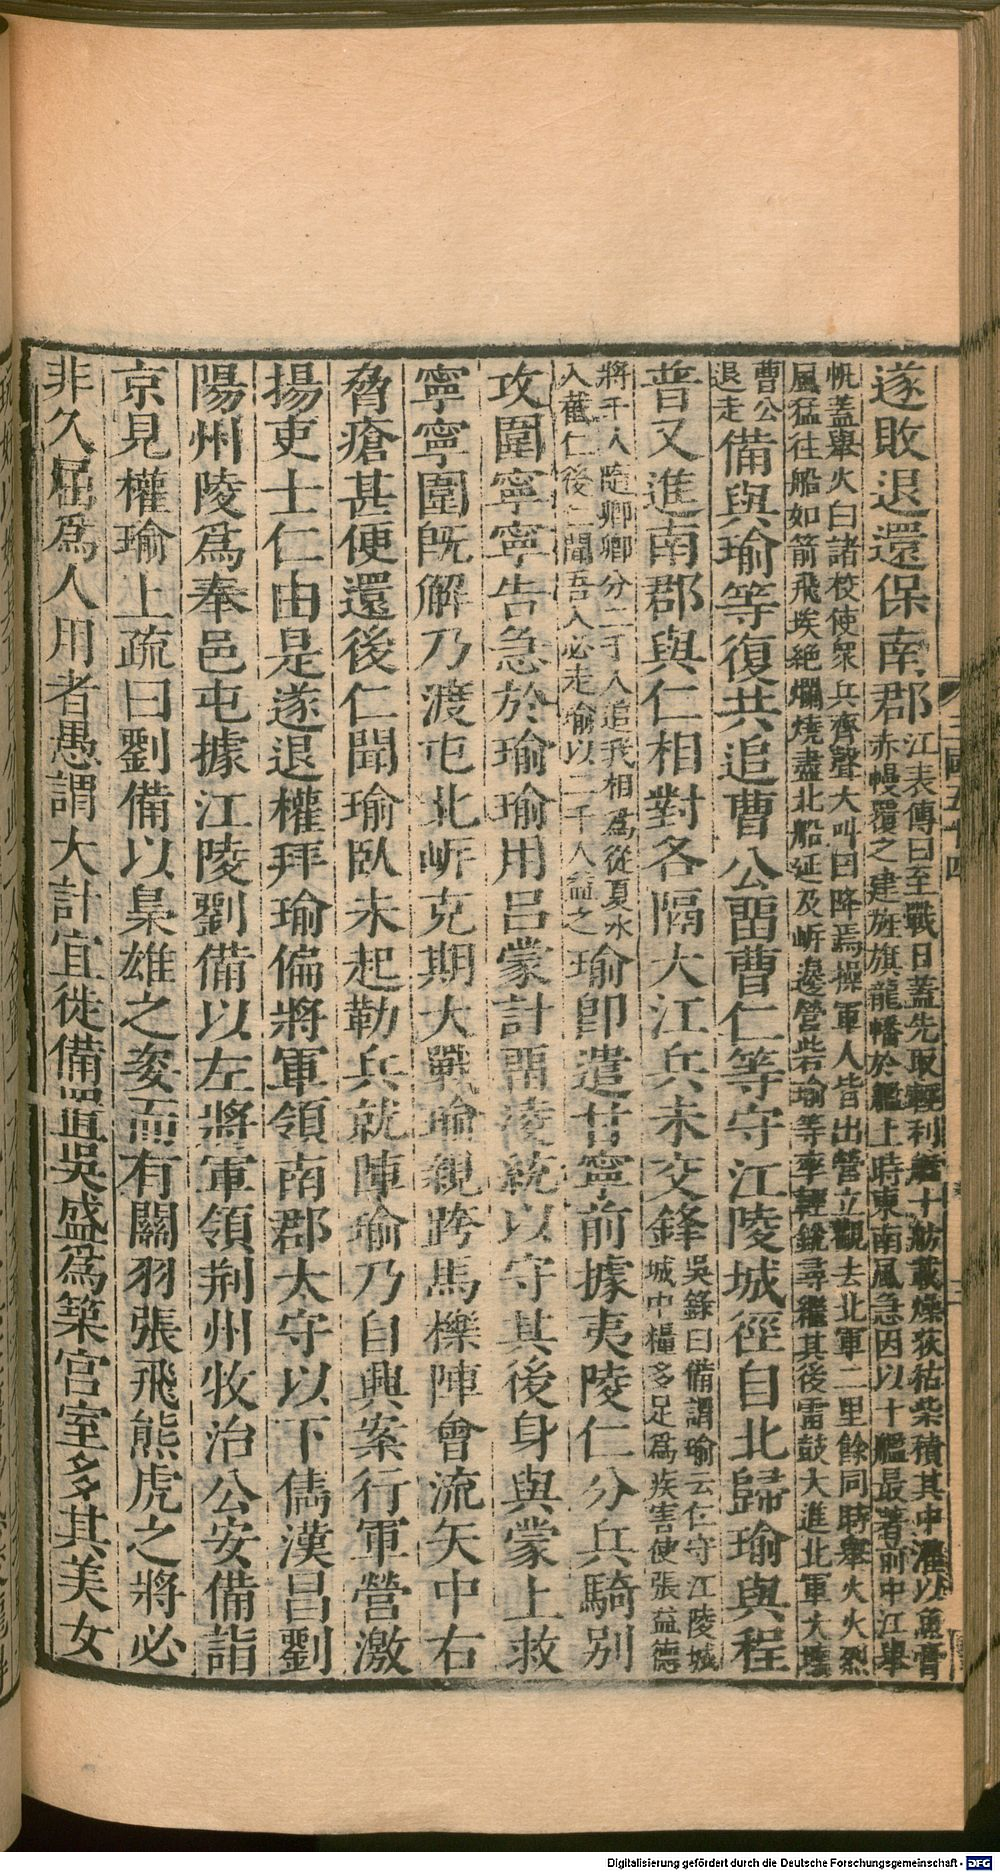 遂敗退還保南郡
江表傳曰至戰日蓋先取輕利艦十舫載燥荻枯柴積其中灌以魚膏
赤幔覆之建旌旗龍幡於艦上時東南風急因以十艦最著前中江舉
帆蓋舉火白諸校使眾兵齊聲大叫曰降焉操軍人皆出營立觀去北軍二里餘同時舉火火烈
風猛往船如箭飛埃絕爛燒盡北船延及岍邊營砦瑜等率輕銳尋繼其後雷鼓大進北軍大壞
曹公
退走
備與瑜等復共追曹公畱曹仁等守江陵城徑自北歸瑜與程
普又進南郡與仁相對各隔大江兵未交鋒
吳錄曰備謂瑜云仁守江陵城
城中糧多足爲疾害使張益德
將千人隨卿卿分二千人追我相爲從夏水
入截仁後仁聞吾入必走瑜以二千人益之
瑜卽遣甘寧前據夷陵仁分兵騎別
攻圍寧寧告急於瑜瑜用呂蒙計畱淩統以守其後身與蒙上救
寧寧圍旣解乃渡屯北岍克期大戰瑜親跨馬櫟陣會流矢中右
脅瘡甚便還後仁聞瑜臥未起勒兵就陣瑜乃自興案行軍營激
揚吏士仁由是遂退權拜瑜偏將軍領南郡太守以下儁漢昌劉
陽州陵爲奉邑屯據江陵劉備以左將軍領荆州牧治公安備詣
京見權瑜上疏曰劉備以梟雄之姿而有關羽張飛熊虎之將必
非久屈爲人用者愚謂大計宜徙備置吳盛爲築宮室多其美女
三國五十四
Digitalisierung gefördert durch die Deutsche Forschungsgemeinschaft - DFG